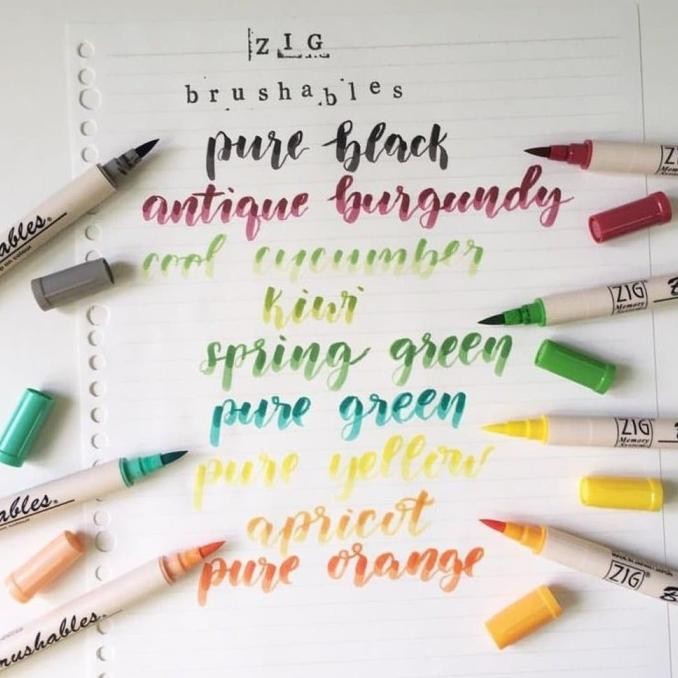 ZIG
brushables
pure black
antique burgundy
cool cucumber
kiwi
spring green
pure green
pure yellow
apricot
pure orange
ables®
ables®
rushables®
ZIG
ZIG
Memory
Systems
ZIG
Memory
Systems
ZIG®